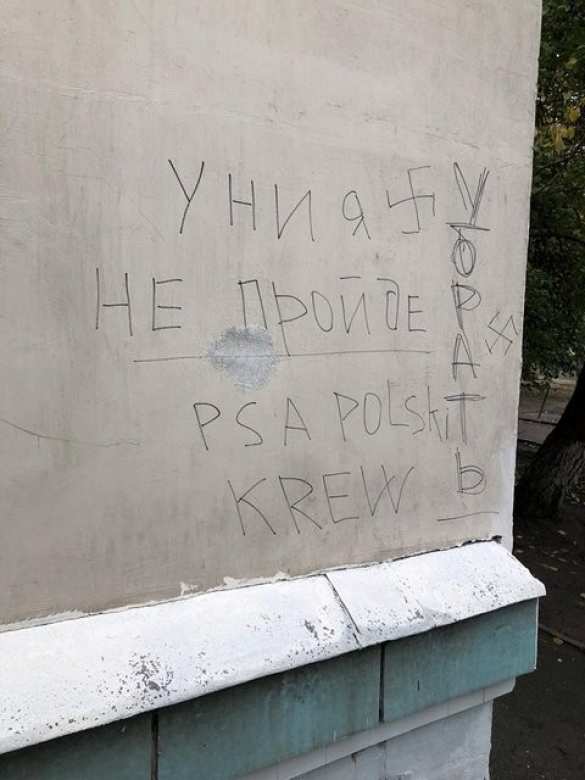 УНИЯ
НЕ ПРОЙдЕ
PSA POLSki
KREW
УбРАТЬ